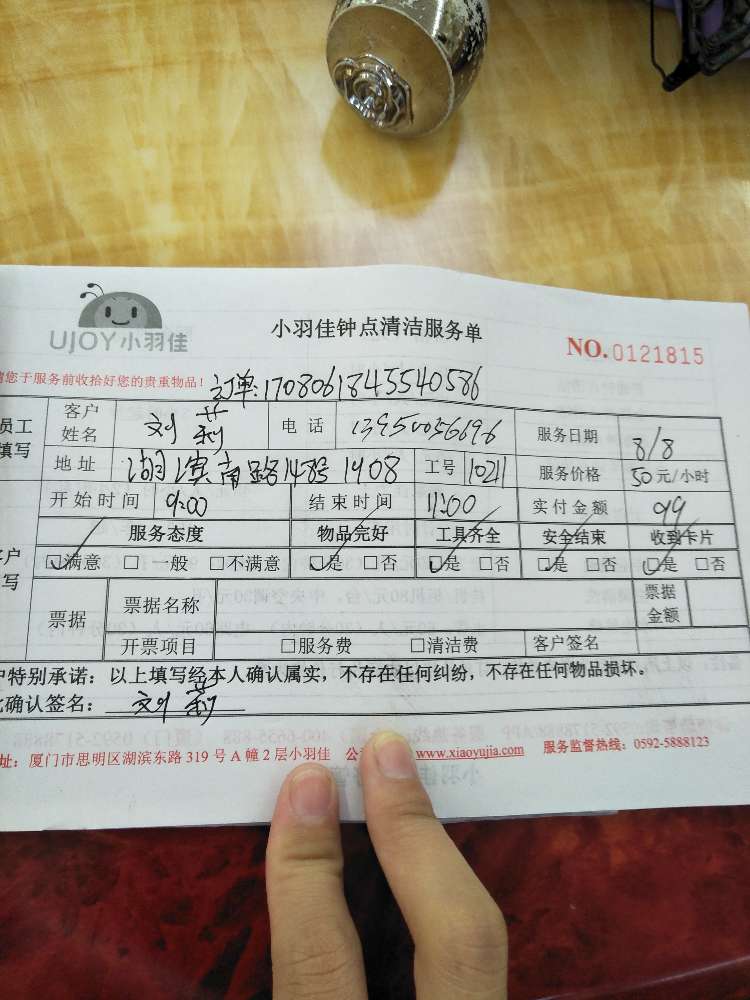 UJOY小羽佳
小羽佳钟点清洁服务单
NO.0121815
请您于服务前收拾好您的贵重物品！
订单:1708061845540586
员工填写
客户姓名 刘莉 电话 13950056696 服务日期 8/8
地址 湖滨南路148号1408 工号 10211 服务价格 50元/小时
开始时间 9:00 结束时间 11:00 实付金额 99
服务态度 物品完好 工具齐全 安全结束 收到卡片
客户填写
☑满意 □一般 □不满意 ☑是 □否 ☑是 □否 ☑是 □否 ☑是 □否
票据 票据名称 票据金额
开票项目 □服务费 □清洁费 客户签名
户特别承诺：以上填写经本人确认属实，不存在任何纠纷，不存在任何物品损坏。
确认签名： 刘莉
址：厦门市思明区湖滨东路319号A幢2层小羽佳 www.xiaoyujia.com 服务监督热线：0592-5888123